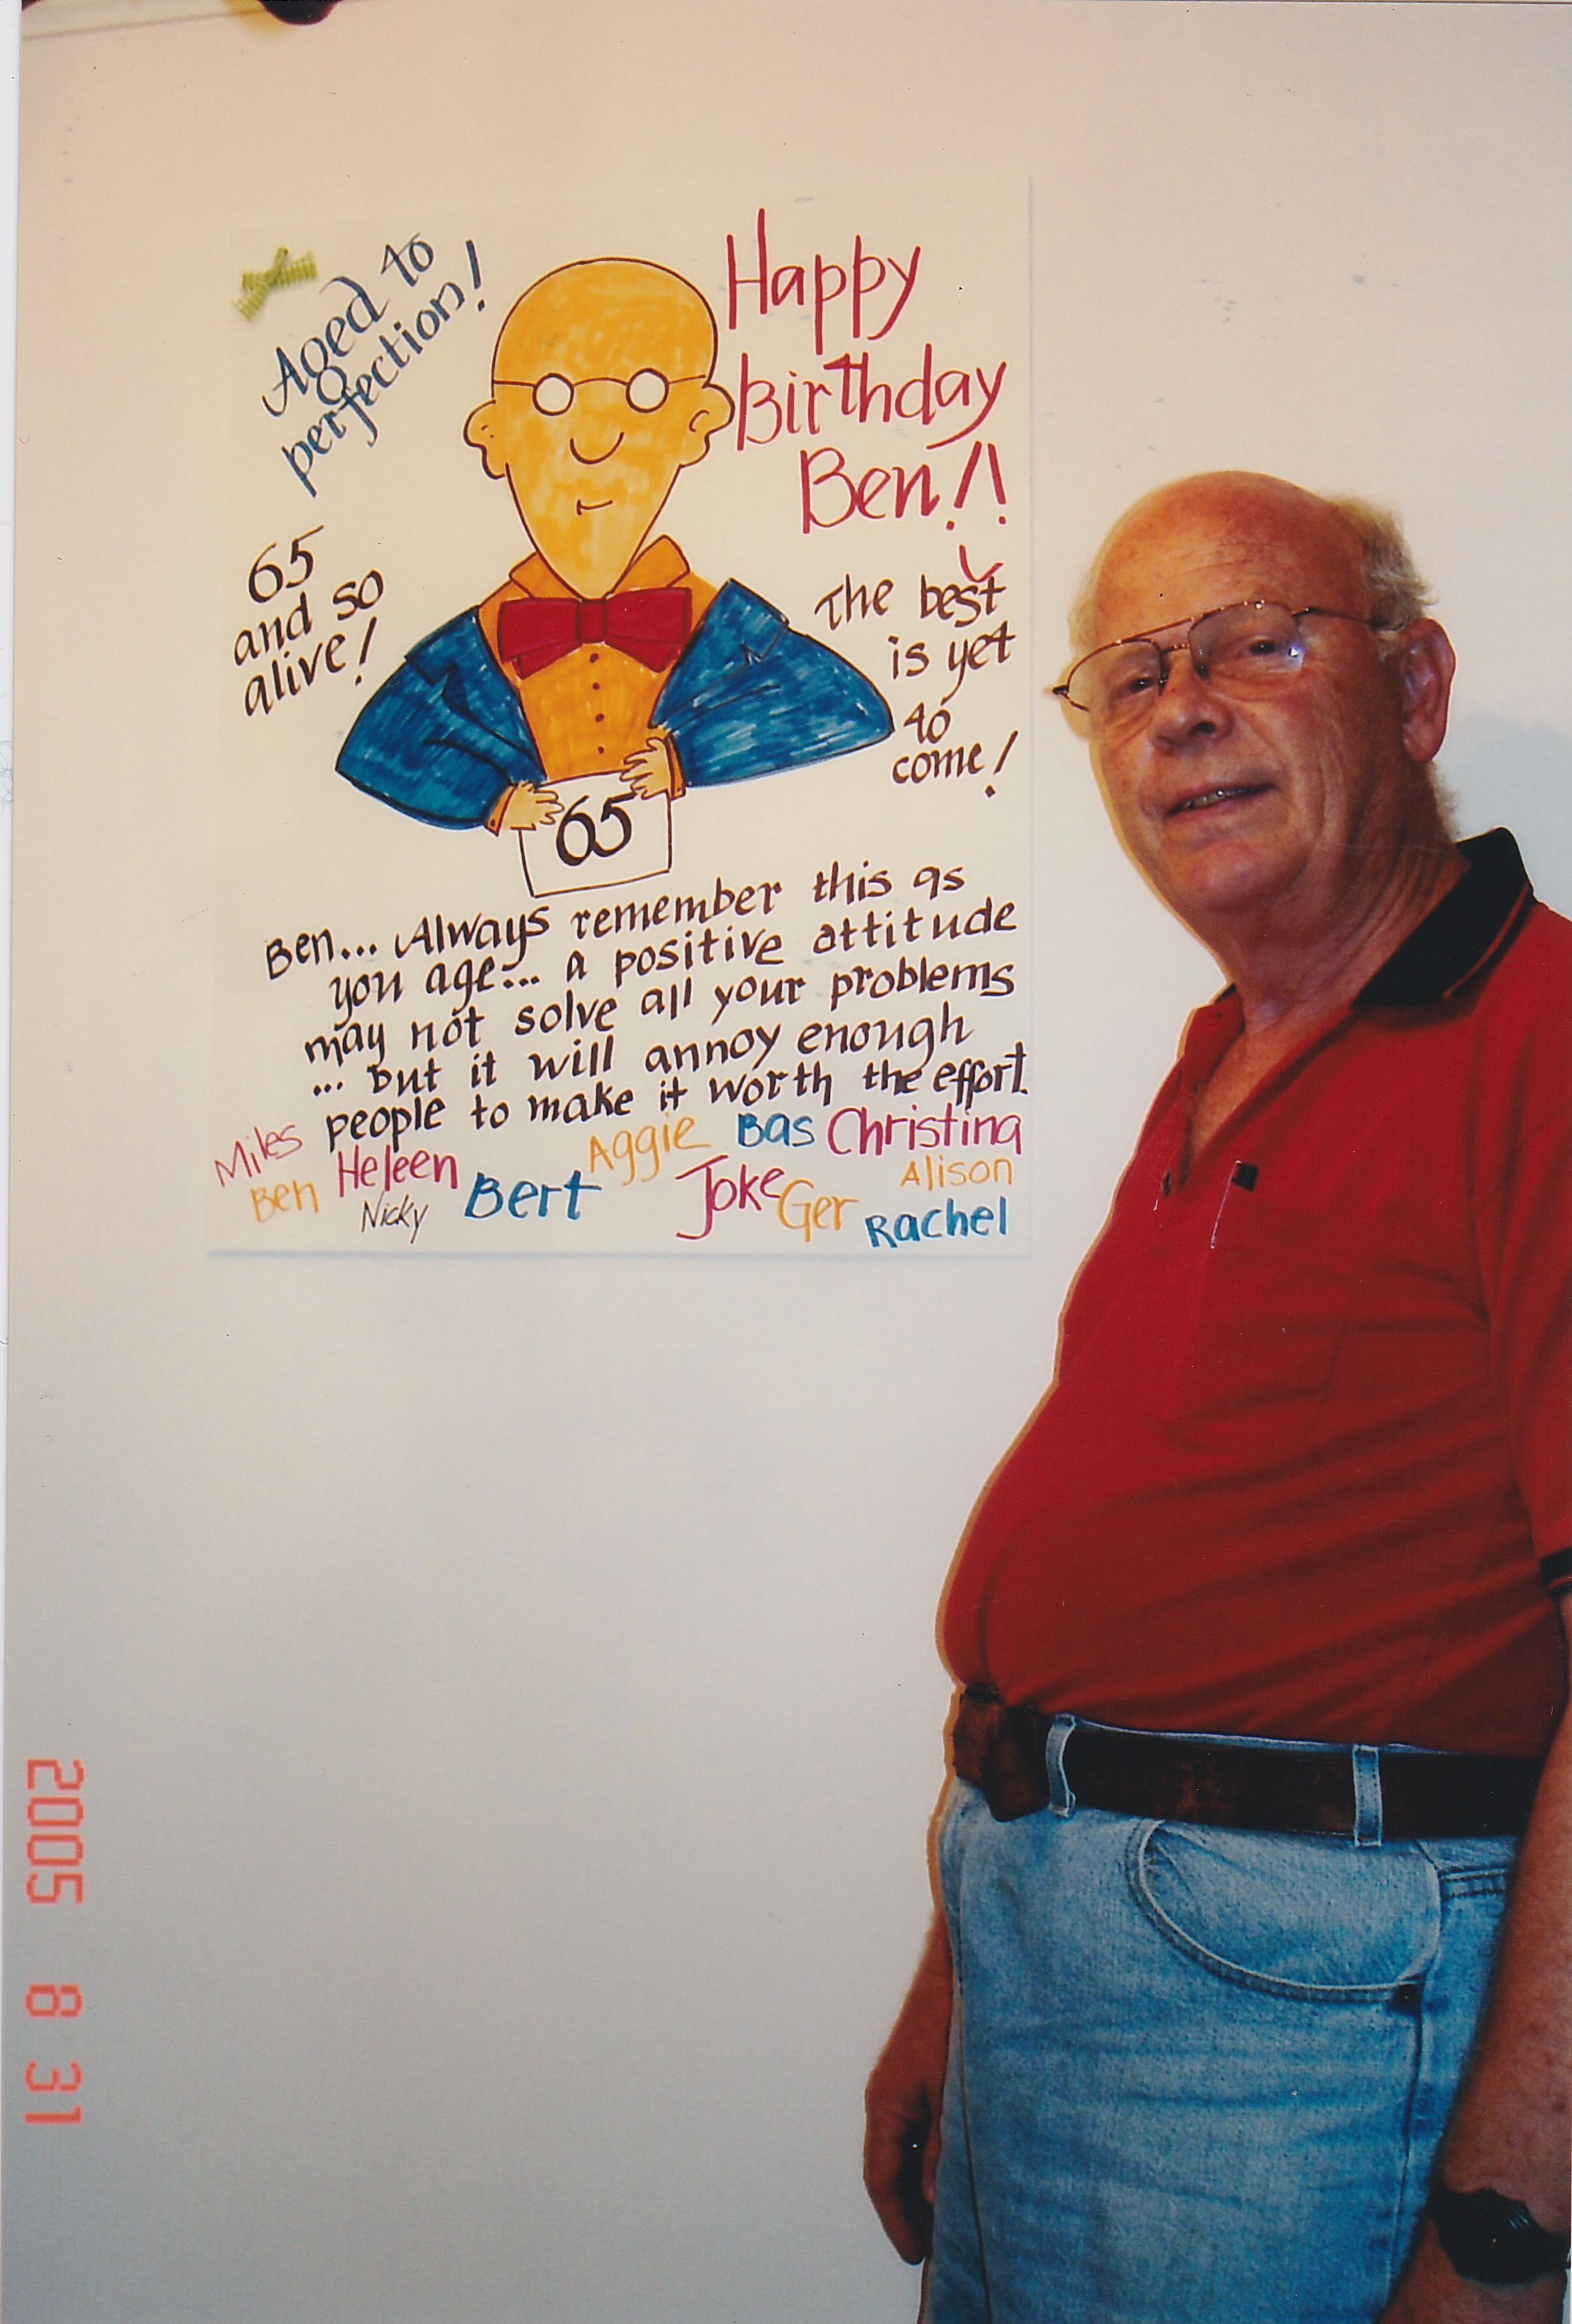 Aged to
perfection!
Happy
Birthday
Ben!!
65
and so
alive!
The best
is yet
to
come!
65
Ben... Always remember this as
you age... a positive attitude
may not solve all your problems
... but it will annoy enough
people to make it worth the effort.
Miles Heleen Aggie Bas Christina
Ben Nicky Bert Joke Ger Alison
Rachel
2005 8 31